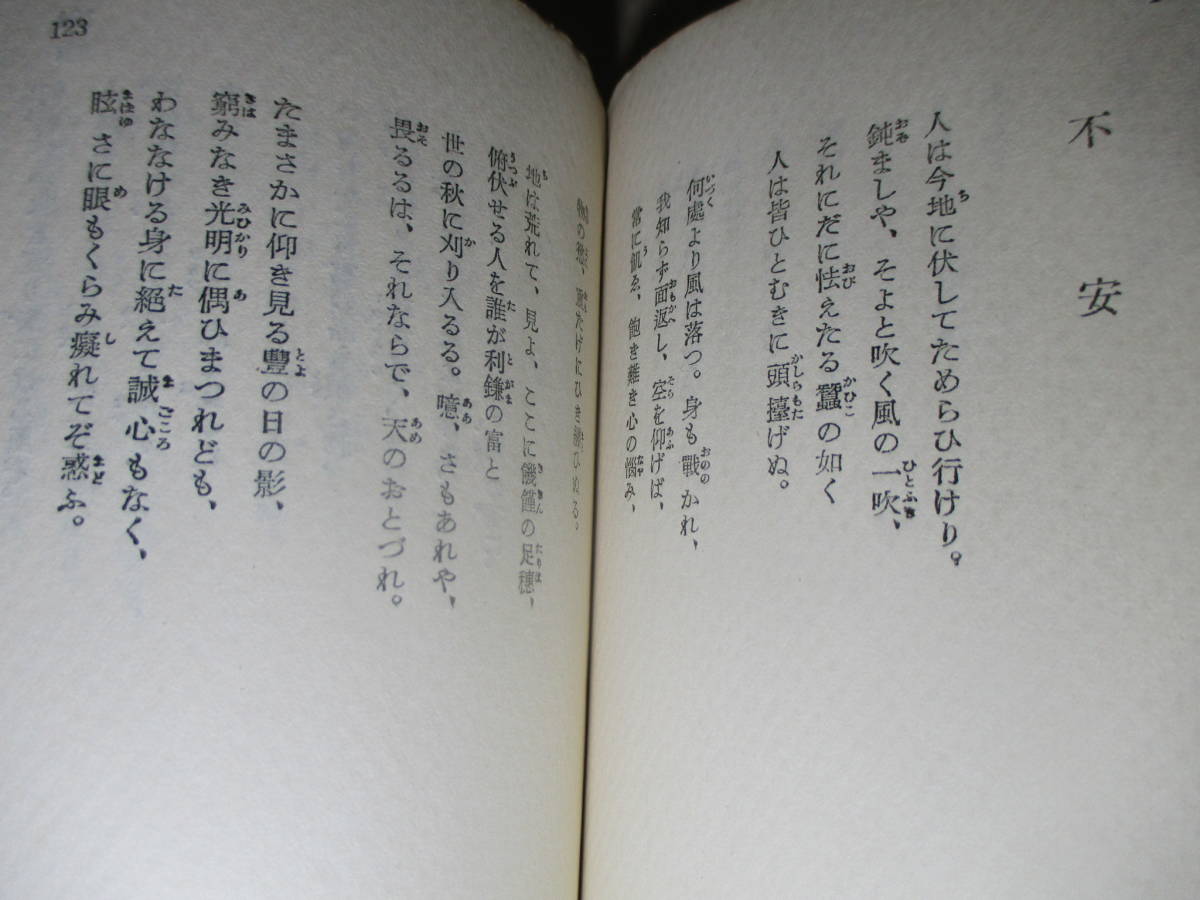 不安
人は今地に伏してためらひ行けり。
鈍ましや、そよと吹く風の一吹、
それにだに怯えたる蠶の如く
人は皆ひとむきに頭擡げぬ。
何處より風は落つ。身も戰かれ、
我知らず面返し、空を仰げば、
常に飢ゑ、飽き難き心の惱み、
の慾、たげにひきひぬる。
地は荒れて、見よ、ここに饑饉の足穗、
俯伏せる人を誰が利鎌の富と
世の秋に刈り入るる。噫、さもあれや、
畏るるは、それならで、天のおとづれ。
たまさかに仰き見る豐の日の影、
窮みなき光明に偶ひまつれども、
わななける身に絕えて誠心もなく、
眩さに眼もくらみ癡れてぞ惑ふ。
123